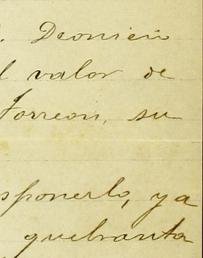 Dionicio
l valor de
Torreon, su
sponerlo, ya
quebranta